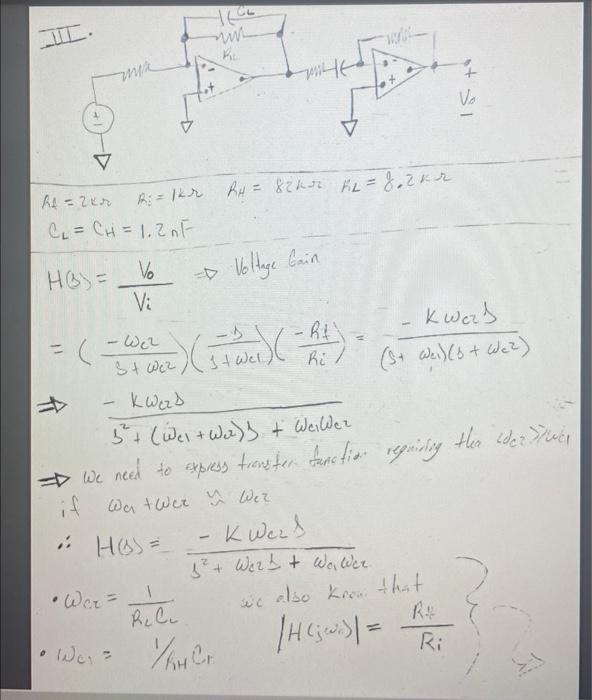 III.
CL
RL
Vo
Rf = 2kΩ Ri = 1kΩ RH = 82kΩ RL = 8.2kΩ
CL = CH = 1.2nF
H(s) = Vo / Vi ⇒ Voltage Gain
= (-ωc2 / s + ωc2)(-s / s + ωc1)(-Rf / Ri) = -Kωc2s / (s + ωc1)(s + ωc2)
⇒ -Kωc2s / s² + (ωc1 + ωc2)s + ωc1ωc2
⇒ We need to express transfer function requiring then ωc2 >> ωc1
if ωc1 + ωc2 ≈ ωc2
∴ H(s) = -Kωc2s / s² + ωc2s + ωc1ωc2
• ωc2 = 1 / RLCL we also know that
• ωc1 = 1/RHC |H(jω)| = Rf / Ri